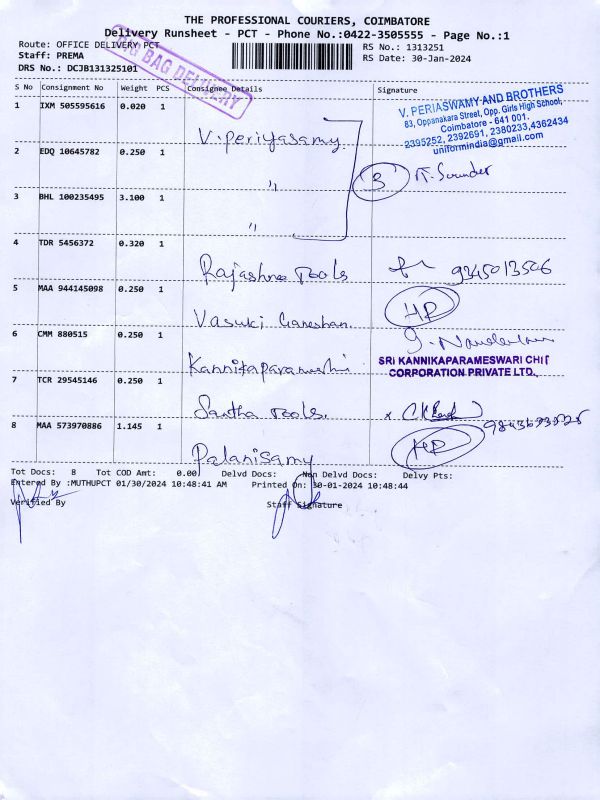 THE PROFESSIONAL COURIERS, COIMBATORE
Delivery Runsheet - PCT - Phone No.:0422-3505555 - Page No.:1
Route: OFFICE DELIVERY PCT
Staff: PREMA
DRS No.: DCJB131325101
RS No.: 1313251
RS Date: 30-Jan-2024
BIG BAG DELIVERY
S No Consignment No Weight PCS Consignee Details Signature
V. PERIASWAMY AND BROTHERS
83, Oppanakara Street, Opp. Girls High School,
Coimbatore - 641 001.
2395252, 2392691, 2380233,4362434
uniformindia@gmail.com
1 IXM 505595616 0.020 1 V. periyasamy
2 EDQ 10645782 0.250 1 "
3
3 BHL 100235495 3.100 1 "
4 TDR 5456372 0.320 1 Rajashree Tools 9345013506
5 MAA 944145098 0.250 1 Vasuki Ganeshan. HP
6 CMM 880515 0.250 1 Kannikaparameshi
SRI KANNIKAPARAMESWARI CHIT
CORPORATION PRIVATE LTD.,
7 TCR 29545146 0.250 1 Santha Tools.
8 MAA 573970886 1.145 1 Palanisamy HP
Tot Docs: 8 Tot COD Amt: 0.00 Delvd Docs: Non Delvd Docs: Delvy Pts:
Entered By :MUTHUPCT 01/30/2024 10:48:41 AM Printed On: 30-01-2024 10:48:44
Verified By Staff Signature